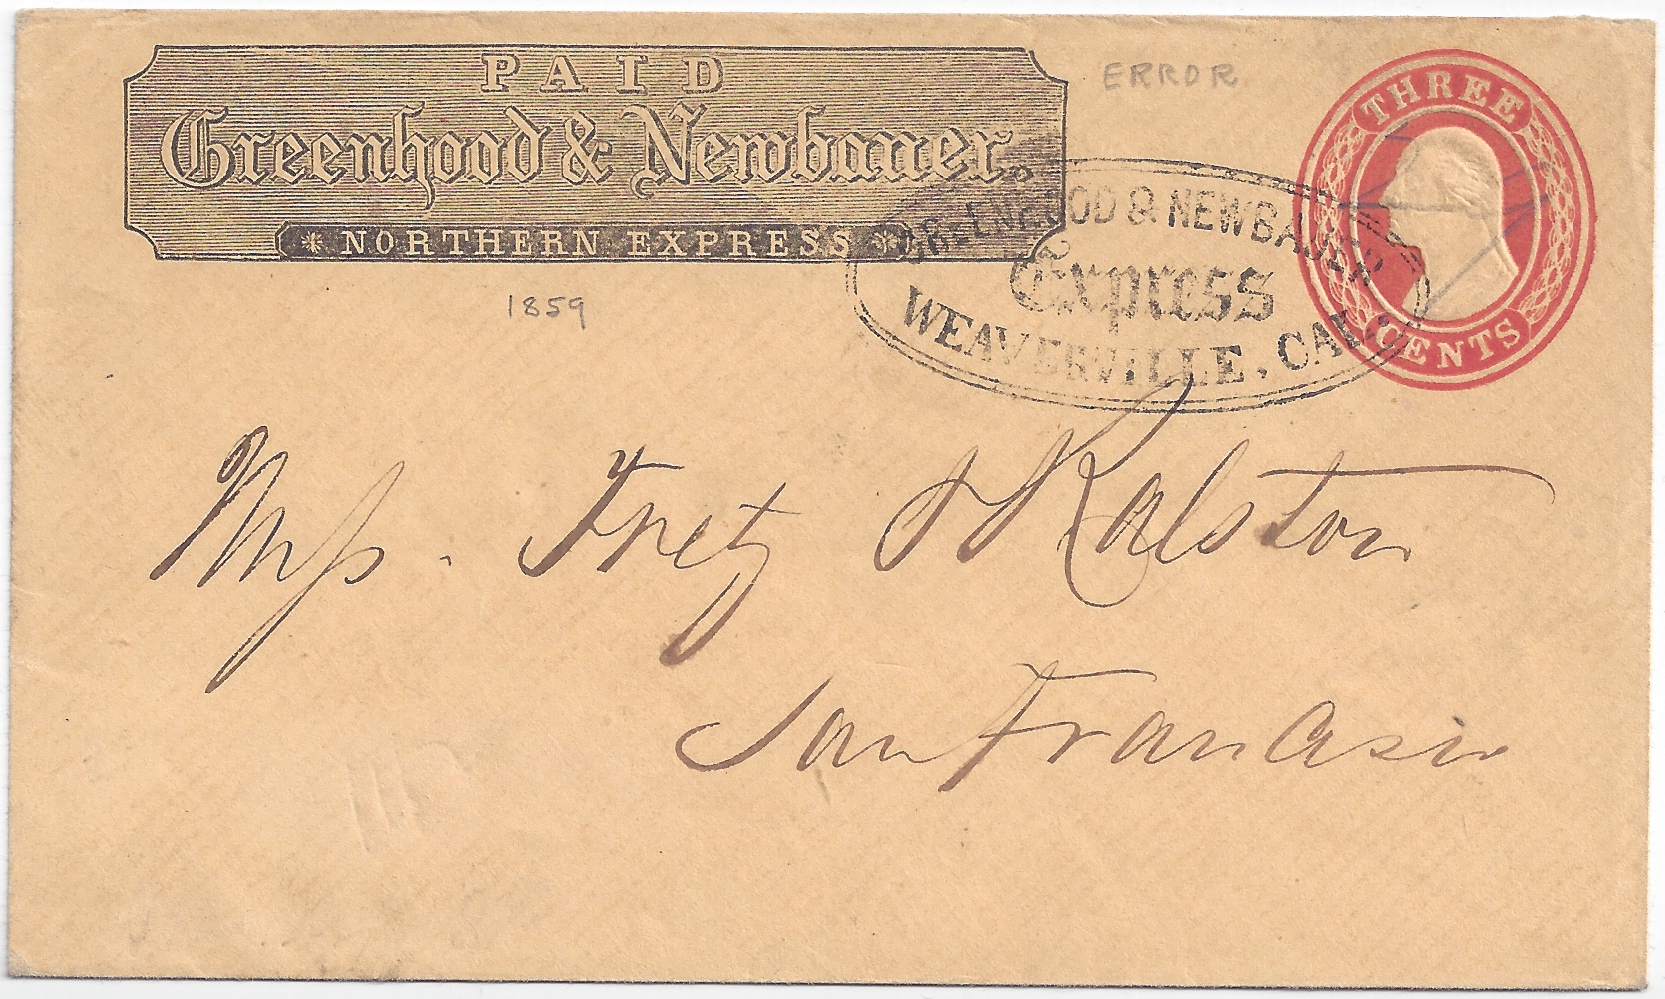 PAID
Greenhood & Newbaner
NORTHERN EXPRESS
ERROR
1859
THREE
CENTS
GREENHOOD & NEWBAUER
Express
WEAVERVILLE, CAL.
Mss. Fretz & Ralston
San Francisco